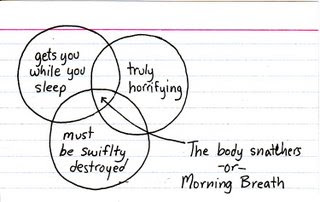 gets you
while you
sleep
truly
horrifying
must
be swiflty
destroyed
The body snatchers
-or-
Morning Breath